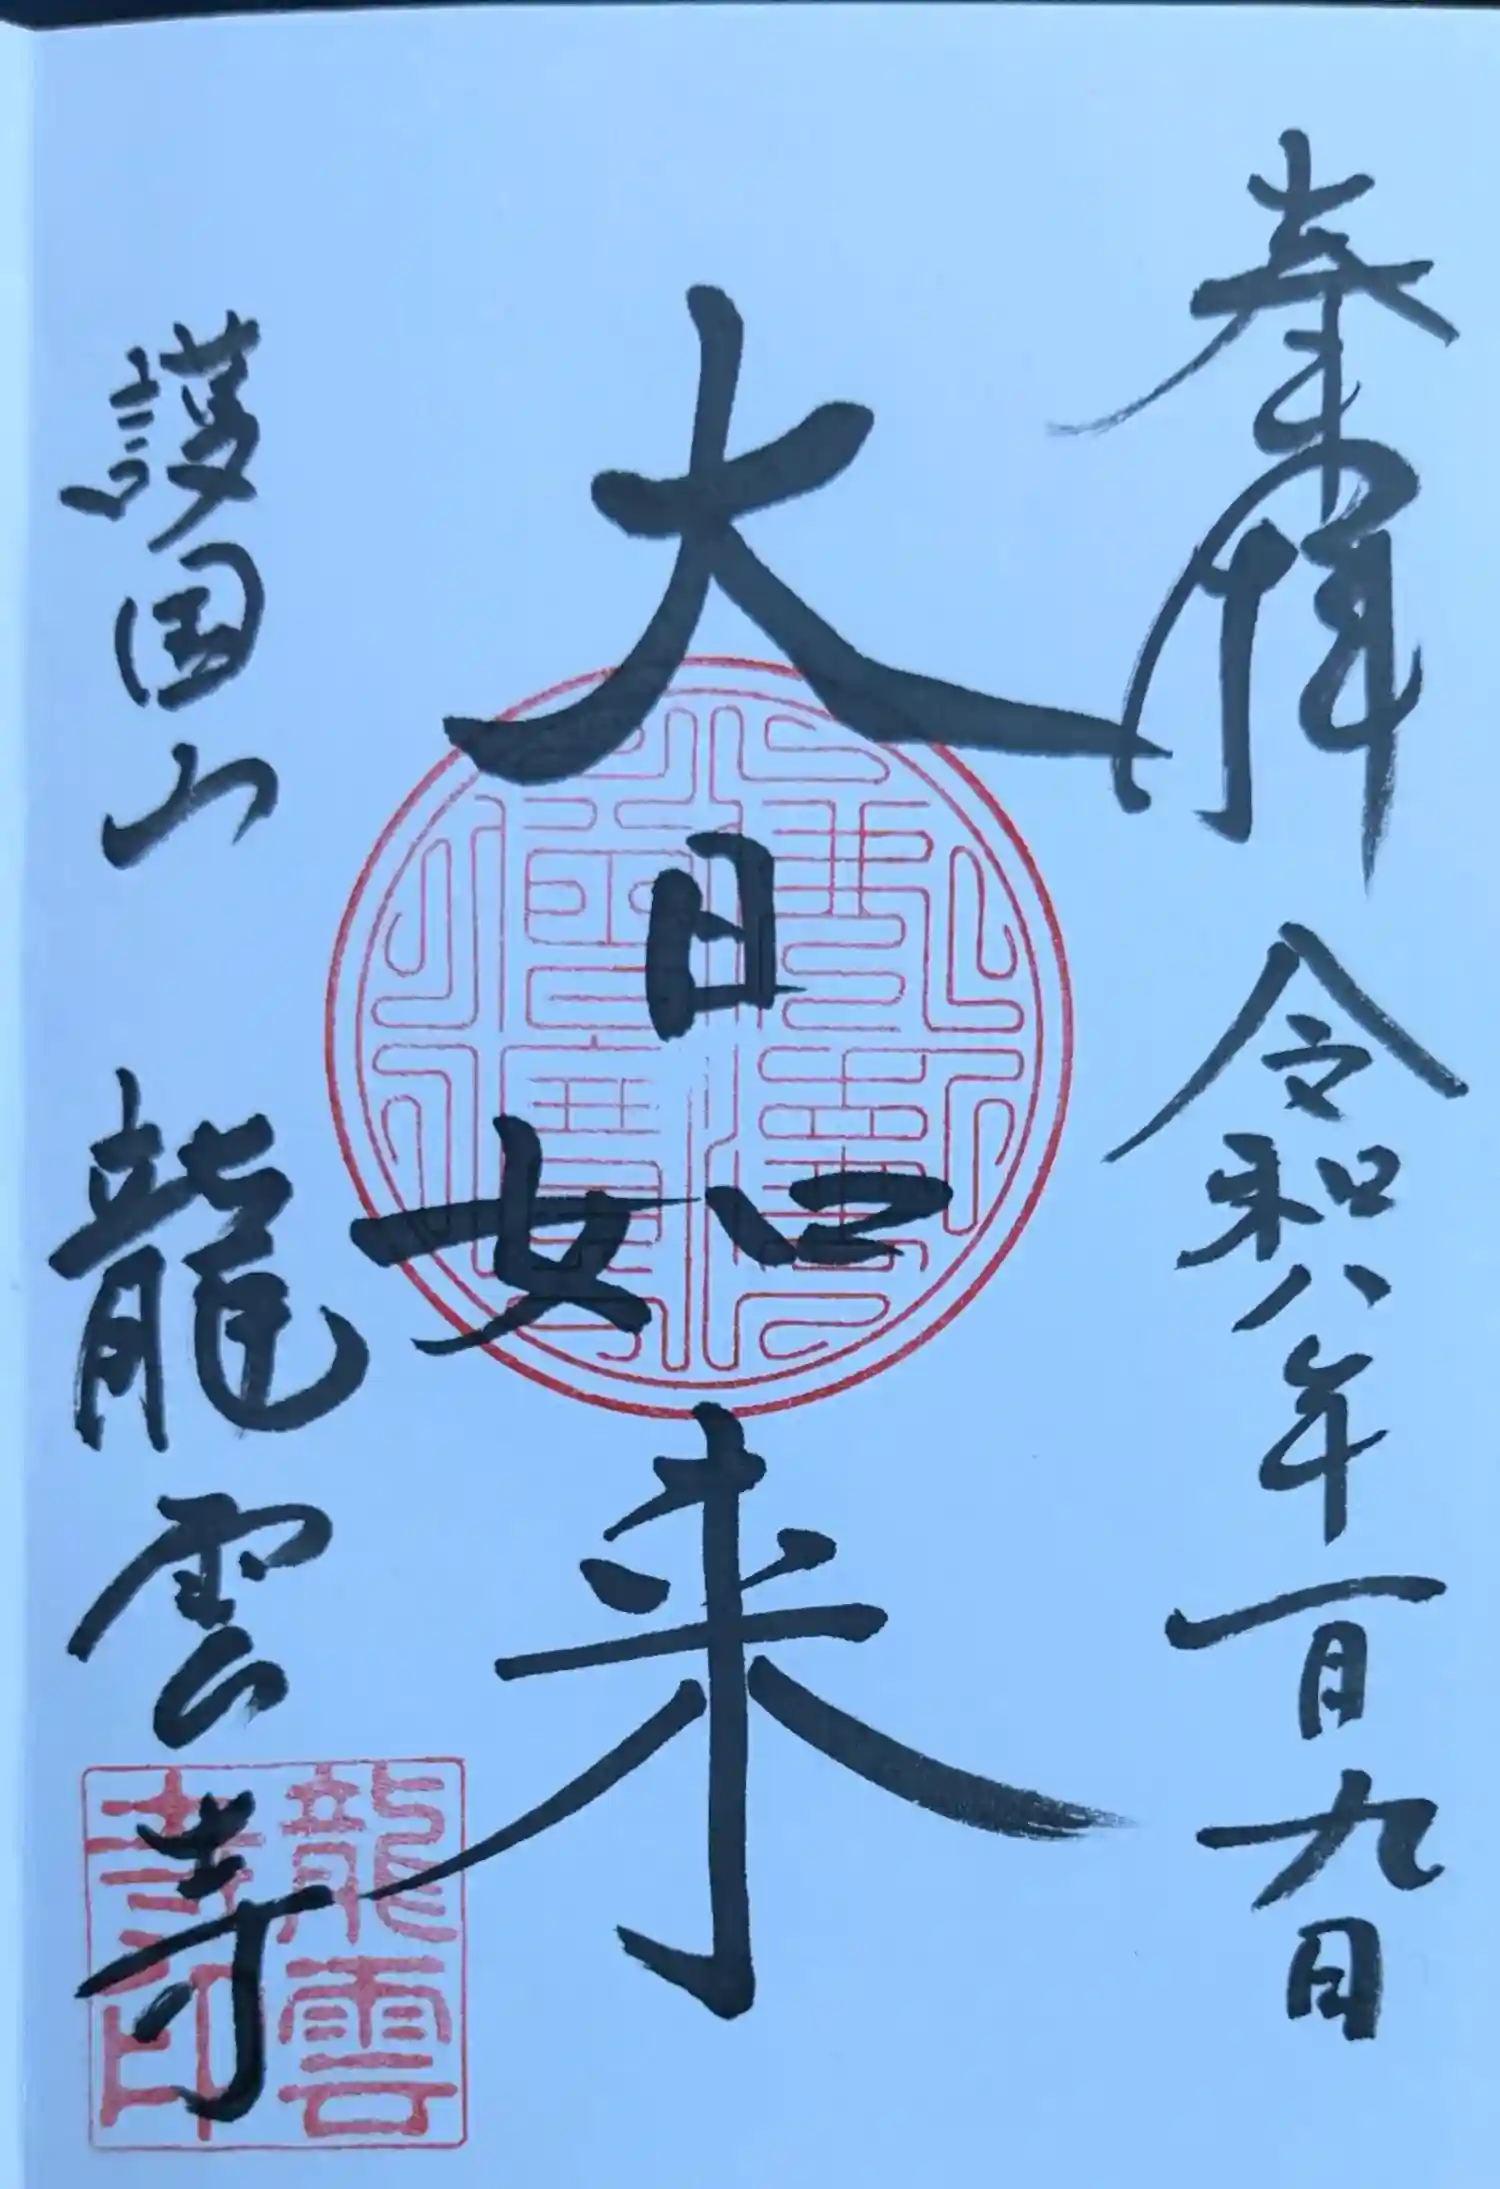 奉拝 令和八年一月九日
大日如来
護国山 龍雲寺
龍雲寺印